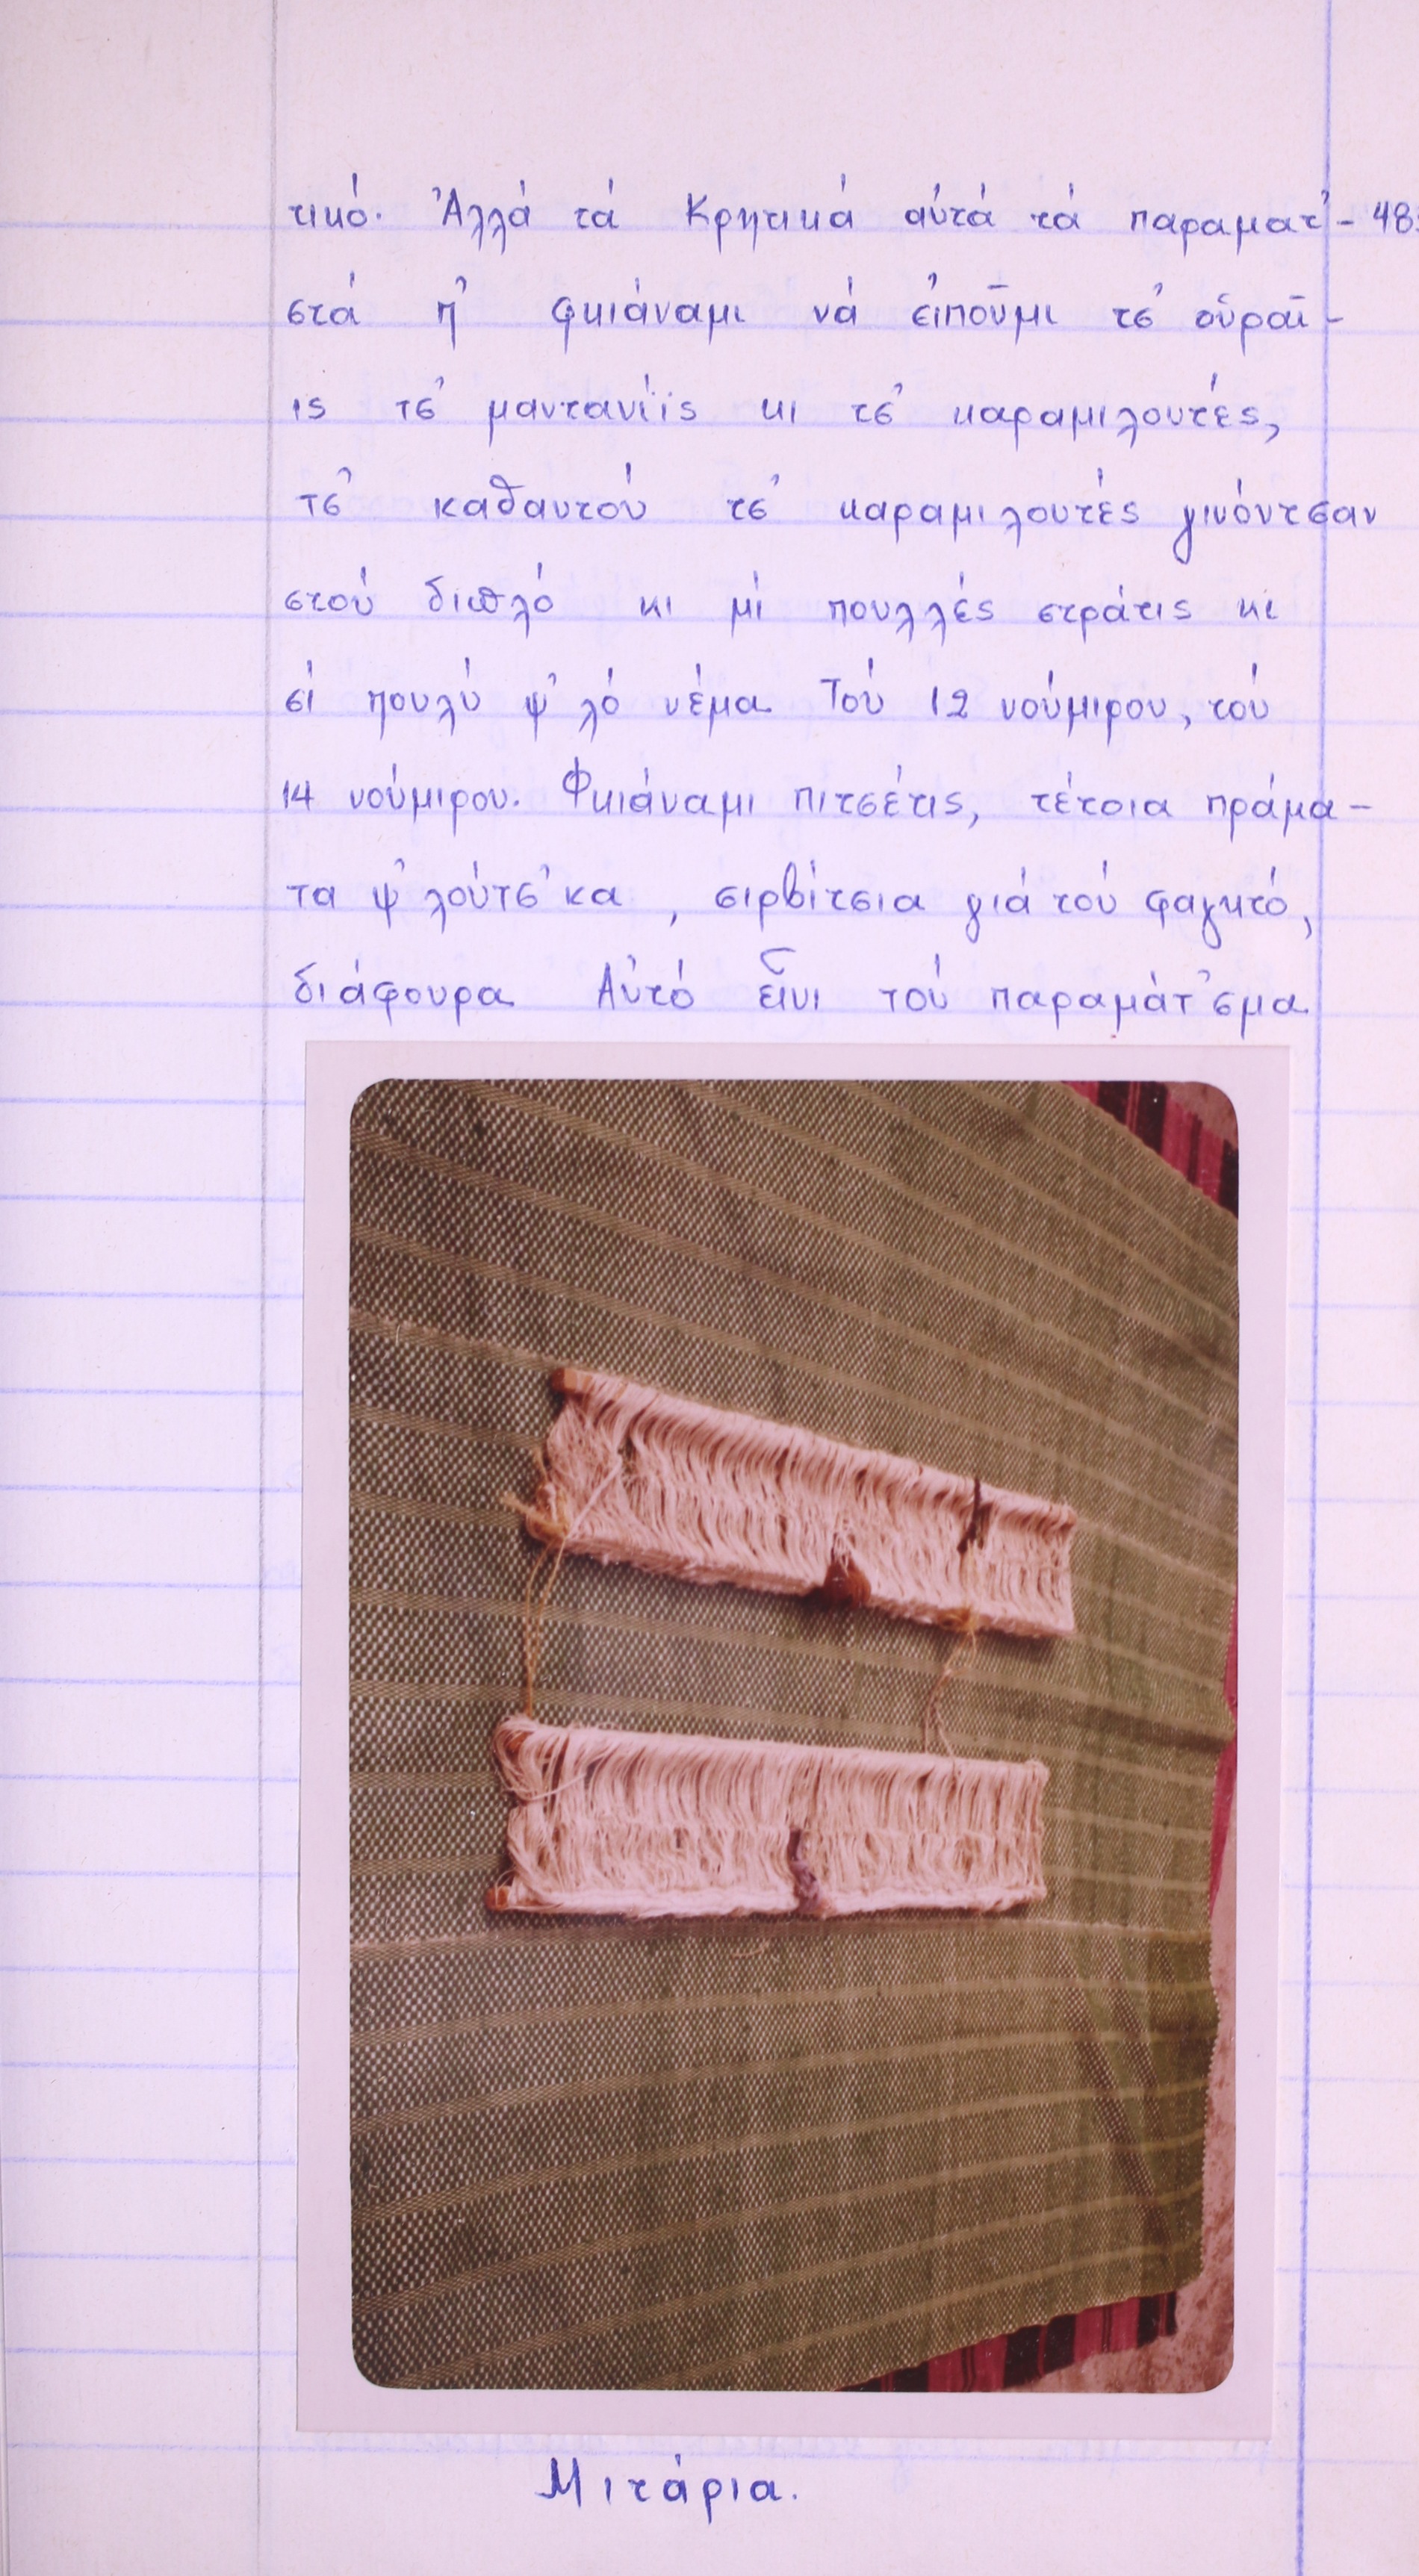 τικό. Ἀλλά τά Κρητικά αὐτά τά παραματ᾿- 48
στά π᾿ φκιάναμι νά εἰποῦμι τσ᾿ οὑραῖ-
ις τσ᾿ μαντανίϊς κι τσ᾿ καραμιλουτές,
τσ᾿ καθαυτού τσ᾿ καραμιλουτές γινόντσαν
στού διπλό κι μί πουλλές στράτις κι
σί πουλύ ψ᾿λό νέμα. Τού 12 νούμιρου, τού
14 νούμιρου. Φκιάναμι πιτσέτις, τέτοια πράμα-
τα ψ᾿λούτσ᾿κα, σιρβίτσια γιά τού φαγητό,
διάφουρα. Αὐτό εἶνι τού παραμάτ᾿σμα.
Μιτάρια.